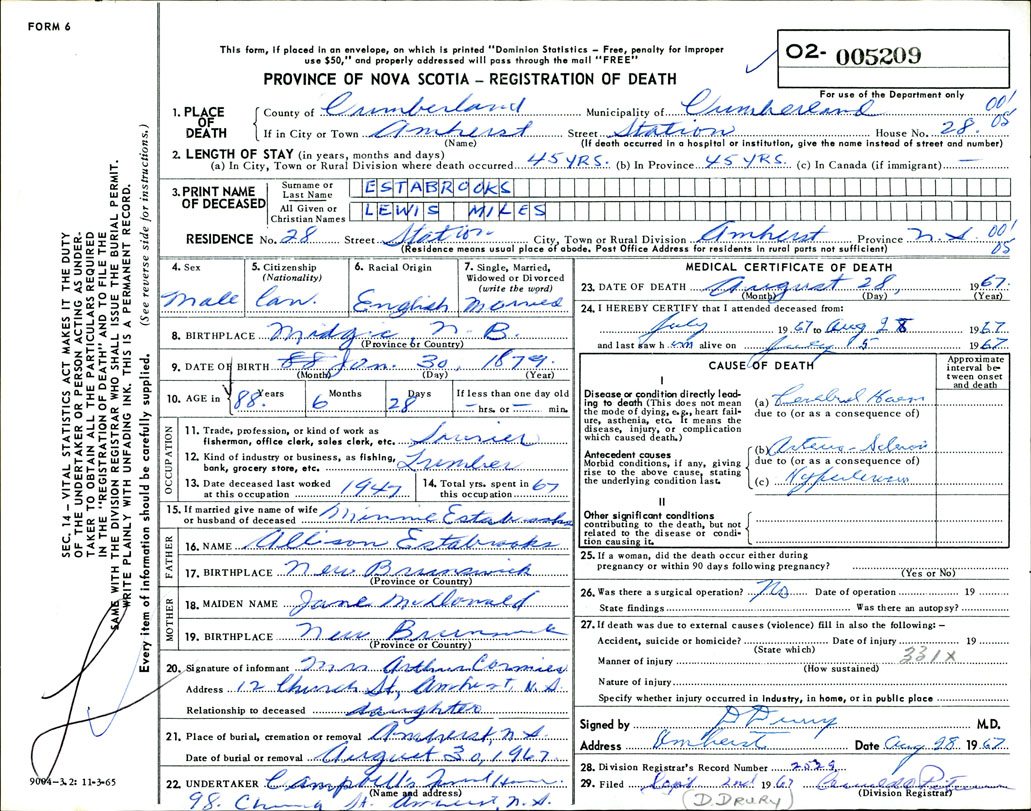 FORM 6
This form, if placed in an envelope, on which is printed "Dominion Statistics – Free, penalty for improper
use $50," and properly addressed will pass through the mail "FREE"
PROVINCE OF NOVA SCOTIA – REGISTRATION OF DEATH
O2- 005209
For use of the Department only
1. PLACE OF DEATH County of Cumberland Municipality of Cumberland 001
If in City or Town Amherst Street Station House No. 28. 05
(Name) (If death occurred in a hospital or institution, give the name instead of street and number)
2. LENGTH OF STAY (in years, months and days)
(a) In City, Town or Rural Division where death occurred 45 YRS. (b) In Province 45 YRS. (c) In Canada (if immigrant) —
3. PRINT NAME OF DECEASED
Surname or Last Name ESTABROOKS
All Given or Christian Names LEWIS MILES
RESIDENCE No. 28 Street Station City, Town or Rural Division Amherst Province N.S. 001 05
(Residence means usual place of abode. Post Office Address for residents in rural parts not sufficient)
4. Sex Male
5. Citizenship (Nationality) Can.
6. Racial Origin English
7. Single, Married, Widowed or Divorced (write the word) Married
8. BIRTHPLACE Midgic, N. B.
(Province or Country)
9. DATE OF BIRTH Jan. 30, 1879.
(Month) (Day) (Year)
10. AGE in 88 Years 6 Months 28 Days If less than one day old — hrs. or — min.
OCCUPATION
11. Trade, profession, or kind of work as fisherman, office clerk, sales clerk, etc.
12. Kind of industry or business, as fishing, bank, grocery store, etc. Lumber
13. Date deceased last worked at this occupation 1947
14. Total yrs. spent in this occupation 67
15. If married give name of wife or husband of deceased Minnie Estabrooks
FATHER
16. NAME Allison Estabrooks
17. BIRTHPLACE New Brunswick
(Province or Country)
MOTHER
18. MAIDEN NAME Jane McDonald
19. BIRTHPLACE New Brunswick
(Province or Country)
20. Signature of informant Mrs Arthur Cormier
Address 12 Church St, Amherst, N.S.
Relationship to deceased daughter
21. Place of burial, cremation or removal Amherst, N.S.
Date of burial or removal August 30, 1967
22. UNDERTAKER Campbell's Funeral Home
(Name and address)
98 Church St. Amherst, N.S.
MEDICAL CERTIFICATE OF DEATH
23. DATE OF DEATH August 28, 1967.
(Month) (Day) (Year)
24. I HEREBY CERTIFY that I attended deceased from:
July 1967 to Aug 28 1967
and last saw him alive on July 5 1967
CAUSE OF DEATH
Approximate interval between onset and death
I
Disease or condition directly leading to death (This does not mean the mode of dying, e.g., heart failure, asthenia, etc. It means the disease, injury, or complication which caused death.)
(a) Cerebral Haem
due to (or as a consequence of)
Antecedent causes
Morbid conditions, if any, giving rise to the above cause, stating the underlying condition last.
(b) Arterio-Sclerosis
due to (or as a consequence of)
(c) Hypertension
II
Other significant conditions
contributing to the death, but not related to the disease or condition causing it.
25. If a woman, did the death occur either during pregnancy or within 90 days following pregnancy?
(Yes or No)
26. Was there a surgical operation? No Date of operation 19
State findings Was there an autopsy?
27. If death was due to external causes (violence) fill in also the following:–
Accident, suicide or homicide? Date of injury 19
(State which) 331X
Manner of injury
(How sustained)
Nature of injury
Specify whether injury occurred in industry, in home, or in public place
Signed by D Drury M.D.
Address Amherst Date Aug 28 1967
28. Division Registrar's Record Number 2529
29. Filed Sept 2nd 1967
(Division Registrar)
(D. DRURY)
SEC. 14 – VITAL STATISTICS ACT MAKES IT THE DUTY
OF THE UNDERTAKER OR PERSON ACTING AS UNDER-
TAKER TO OBTAIN ALL THE PARTICULARS REQUIRED
IN THE "REGISTRATION OF DEATH" AND TO FILE THE
SAME WITH THE DIVISION REGISTRAR WHO SHALL ISSUE THE BURIAL PERMIT.
WRITE PLAINLY WITH UNFADING INK. THIS IS A PERMANENT RECORD.
Every item of information should be carefully supplied. (See reverse side for instructions.)
9004–3.2: 11-3-65